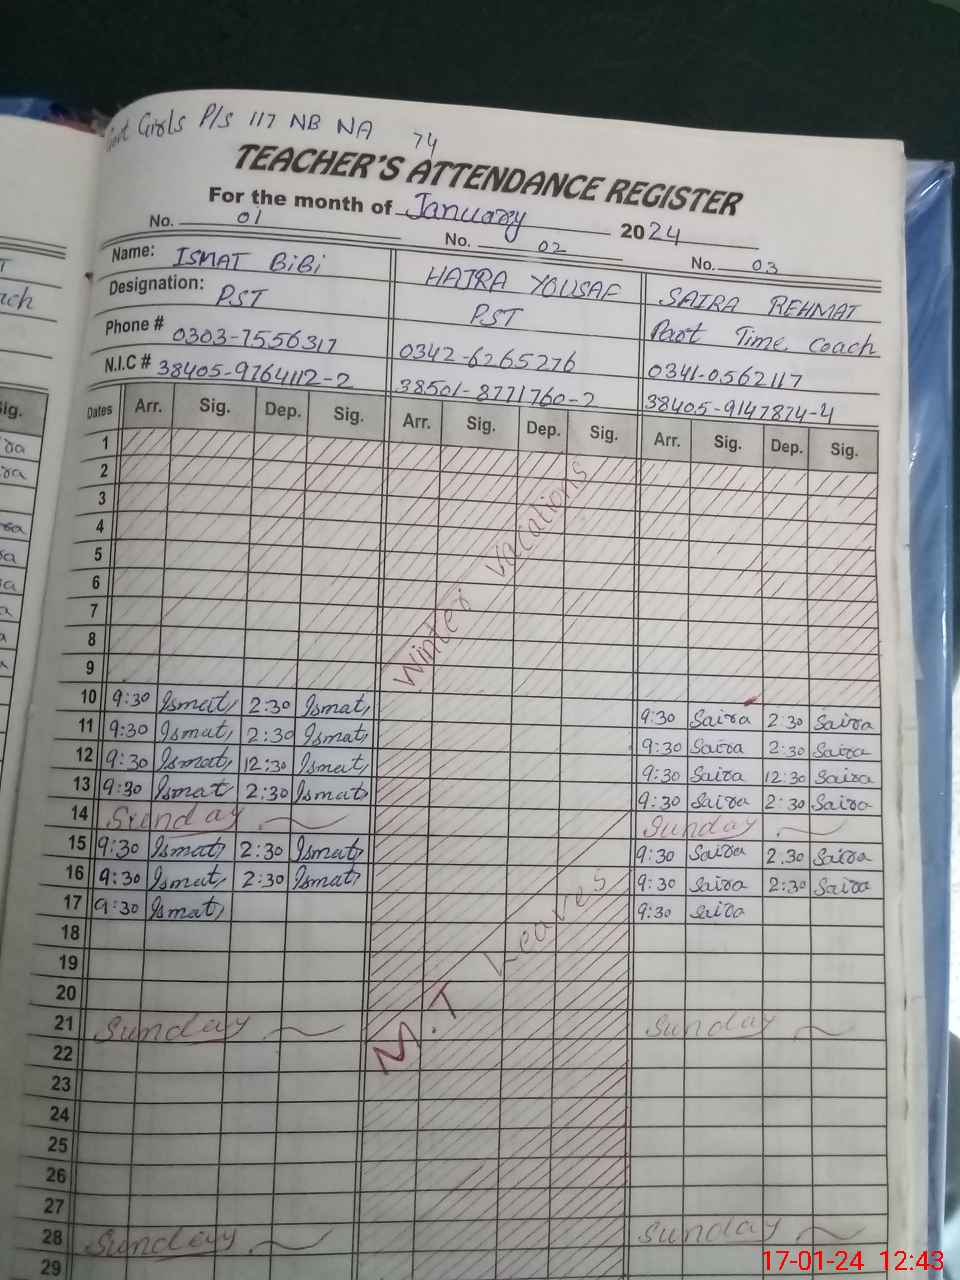 Govt Girls P/S 117 NB NA 74
TEACHER'S ATTENDANCE REGISTER
For the month of January 2024
No. 01 No. 02 No. 03
Name: ISMAT BiBi HAJRA YOUSAF SAIRA REHMAT
Designation: PST PST Part Time coach
Phone # 0303-7556317 0342-6265276 0341-0562117
N.I.C # 38405-9764112-2 38501-8771760-2 38405-9147874-4
Dates Arr. Sig. Dep. Sig. Arr. Sig. Dep. Sig. Arr. Sig. Dep. Sig.
1
2
3
4
5
6
7
8
9
Winter vacations
10 9:30 Ismat 2:30 Ismat 9:30 Saira 2:30 Saira
11 9:30 Ismat 2:30 Ismat 9:30 Saira 2:30 Saira
12 9:30 Ismat 12:30 Ismat 9:30 Saira 12:30 Saira
13 9:30 Ismat 2:30 Ismat 9:30 Saira 2:30 Saira
14 Sunday Sunday
15 9:30 Ismat 2:30 Ismat 9:30 Saira 2.30 Saira
16 9:30 Ismat 2:30 Ismat 9:30 Saira 2:30 Saira
17 9:30 Ismat 9:30 Saira
M.T Leaves
18
19
20
21 Sunday Sunday
22
23
24
25
26
27
28 Sunday Sunday
29
17-01-24 12:43